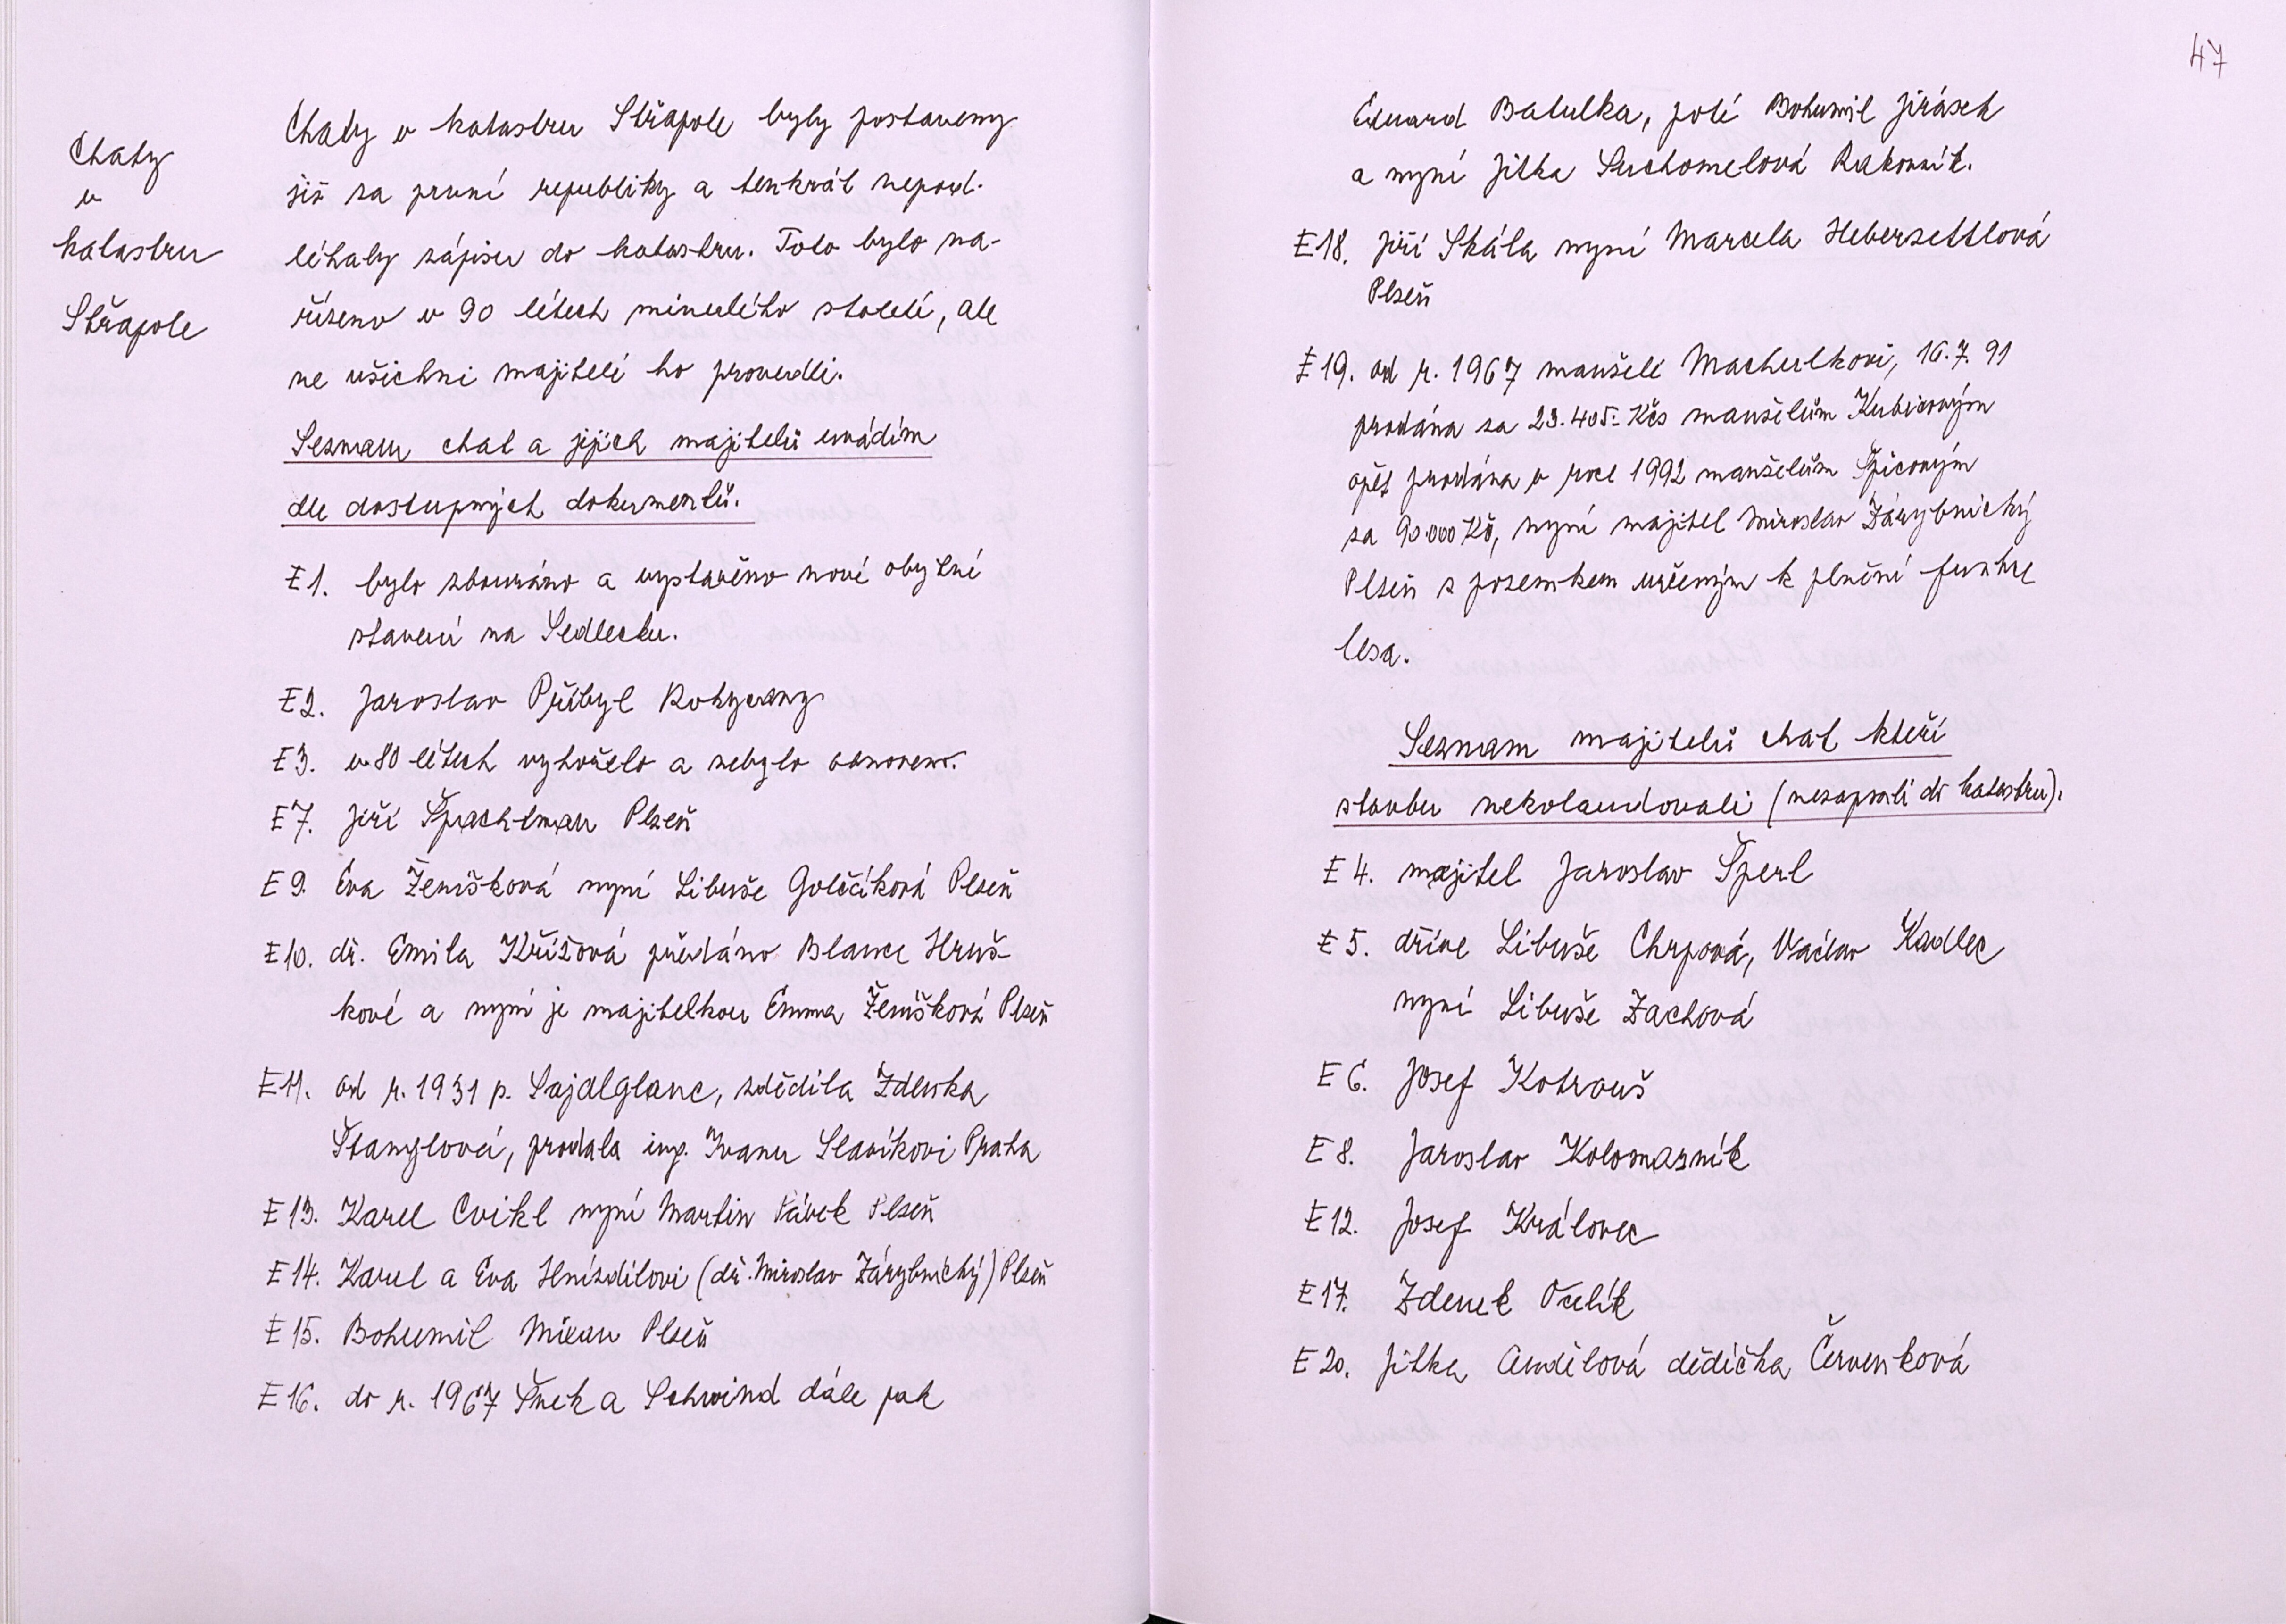 Chaty
v
katastru
Střapole
Chaty v katastru Střapole byly postaveny
již za první republiky a tenkrát nepod-
léhaly zápisu do katastru. Toto bylo na-
řízeno v 90 létech minulého století, ale
ne všichni majitelé ho provedli.
Seznam chat a jejich majitelů uvádím
dle dostupných dokumentů.
E1. bylo zbouráno a vystavěno nové obytné
stavení na Sedlecku.
E2. Jaroslav Přibyl Rokycany
E3. v 80 létech vyhořelo a nebylo obnoveno.
E7. Jiří Špachtman Plzeň
E9. Eva Ženíšková nyní Libuše Golčíková Plzeň
E10. dř. Emila Křížová předáno Blance Hruš-
kové a nyní je majitelkou Emma Ženíšková Plzeň
E11. od r. 1931 p. Sajdlglanc, zdědila Zdenka
Štanglová, prodala ing. Ivanu Slavíkovi Praha
E13. Karel Cvikl nyní Martin Pávek Plzeň
E14. Karel a Eva Hnízdilovi (dř. Miroslav Zárybnický) Plzeň
E15. Bohumil Mixan Plzeň
E16. do r. 1967 Šnek a Schwind dále pak
47
Eduard Batulka, poté Bohumil Jirásek
a nyní Jitka Suchomelová Rakovník.
E18. Jiří Skála nyní Marcela Hebersettlová
Plzeň
E19. od r. 1967 manželé Machulkovi, 16.7. 91
prodána za 23.405.- Kčs manželům Kubicovým
opět prodána v roce 1992 manželům Špicovým
za 90.000 Kč, nyní majitel Miroslav Zárybnický
Plzeň s pozemkem určeným k plnění funkce
lesa.
Seznam majitelů chat kteří
stavbu nekolaudovali (nezapsali do katastru).
E4. majitel Jaroslav Šperl
E5. dříve Libuše Chrpová, Václav Kadlec
nyní Libuše Zachová
E6. Josef Kotrouš
E8. Jaroslav Kolomazník
E12. Josef Královec
E17. Zdenek Včelík
E20. Jitka Andělová dědička Červenková